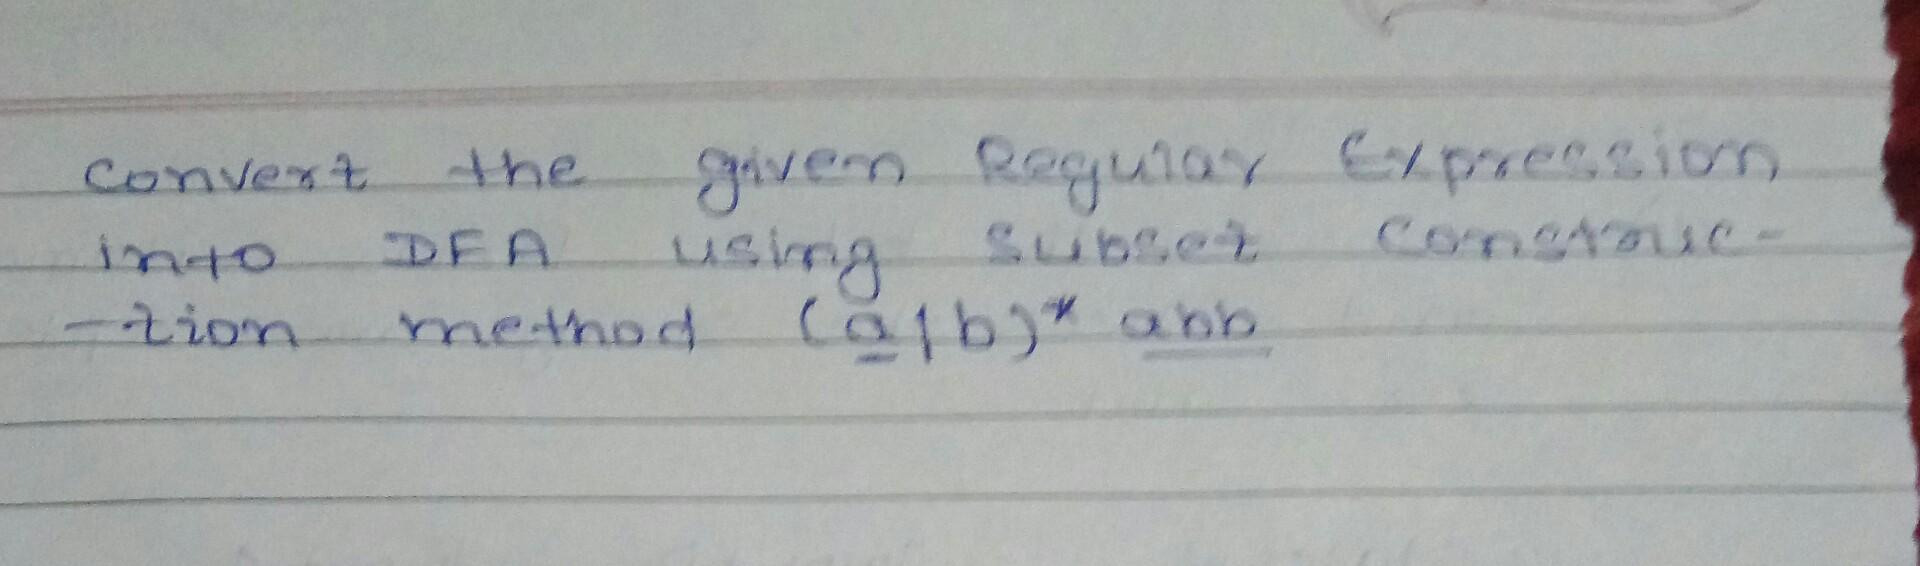 Convert the given Regular Expression
into DFA using subset construc-
-tion method (a|b)* abb